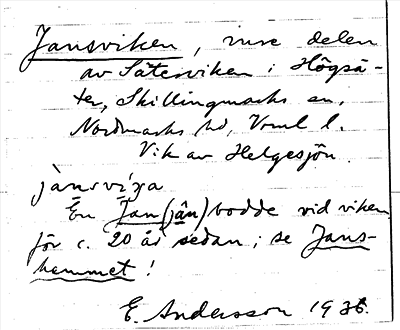 Jansviken, inre delen
av Sätersviken i Högsä-
ter, Skillingmarks sn,
Nordmarks hd, Vrml l.
Vik av Helgesjön.
jànsvíƞa
En Jan (jân) bodde vid viken
för c. 20 år sedan; se Jans-
hemmet!
E. Andersson 1936.